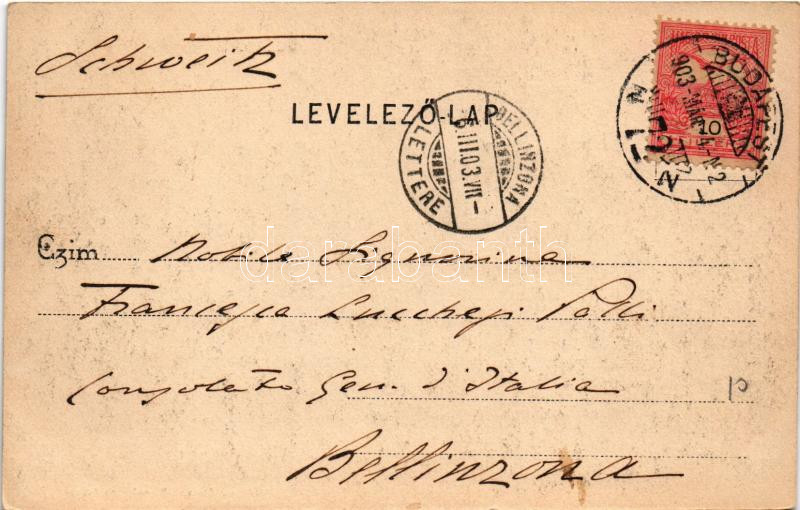 Schweitz
LEVELEZŐ-LAP
BUDAPEST
903 MÁR
10
BELLINZONA
5.III.03.VII-
LETTERE
Czim Nobile Signorina
Francesca Lucchesi Palli
Consolato Gen. d'Italia
Bellinzona
10
darabanth